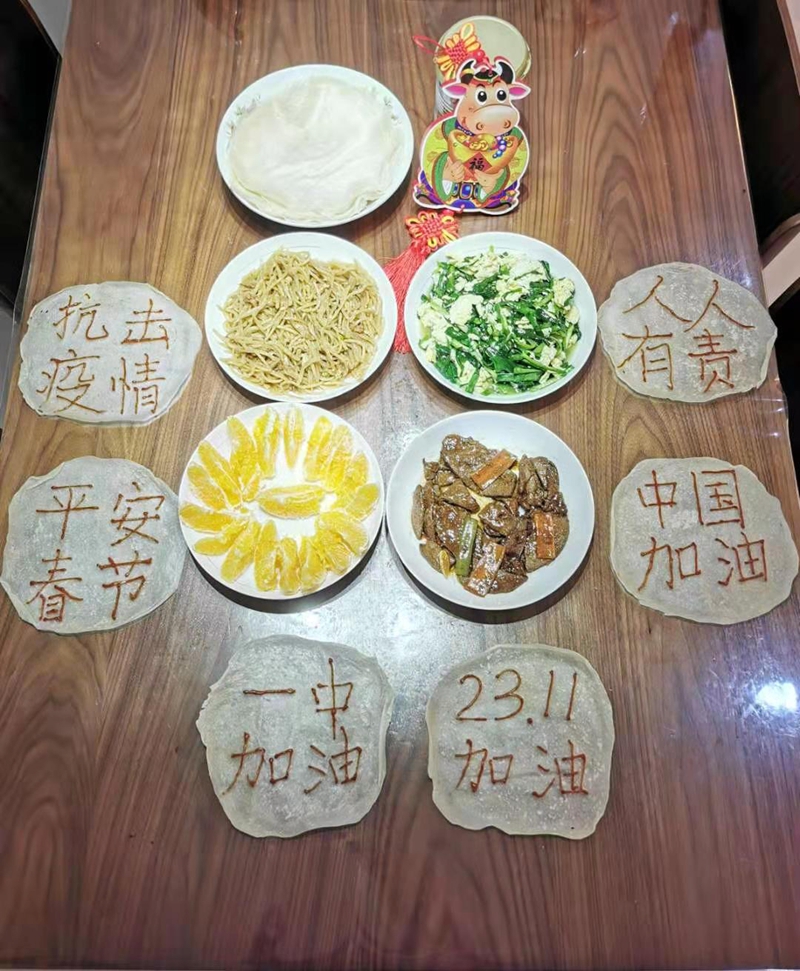 福
抗击
疫情
人人
有责
平安
春节
中国
加油
一中
加油
23.11
加油